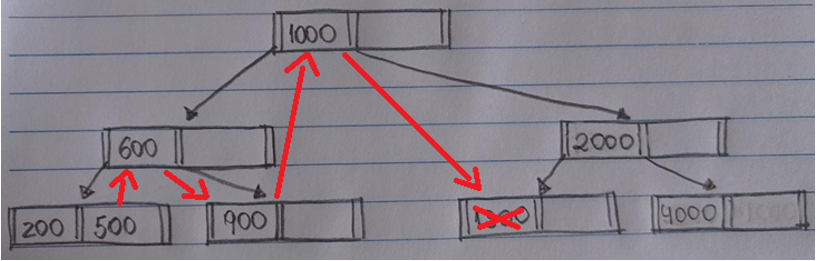 1000
600
2000
200 500
900
4000